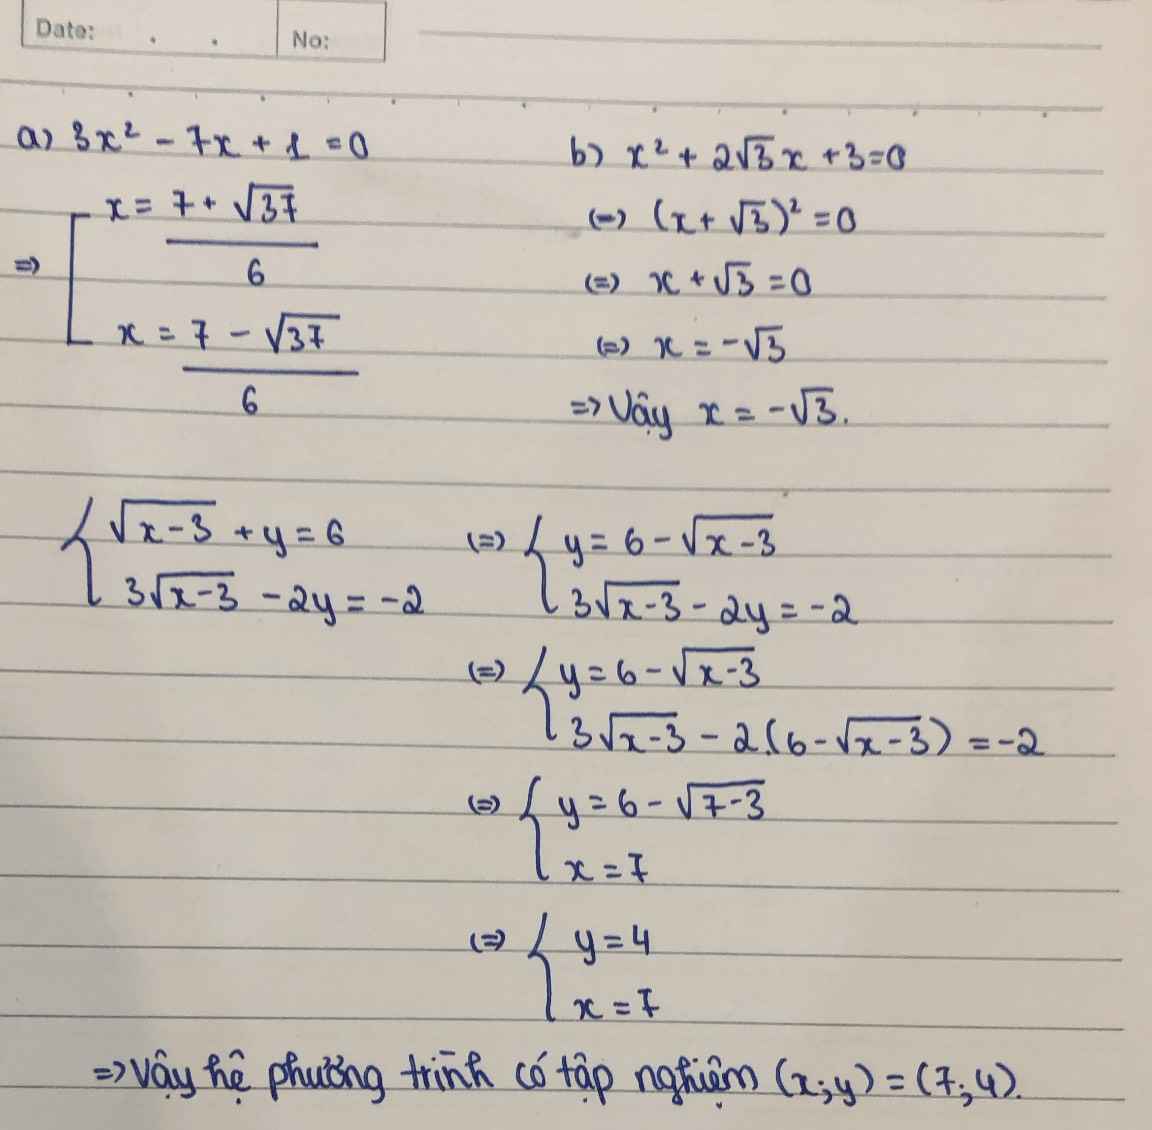 Date: . . No:
a) 3x² - 7x + 1 = 0
⇒ [ x = (7 + √37)/6
x = (7 - √37)/6
b) x² + 2√3x + 3 = 0
(=) (x + √3)² = 0
(=) x + √3 = 0
(=) x = -√3
=> Vậy x = -√3.
{ √(x-3) + y = 6
3√(x-3) - 2y = -2
(=) { y = 6 - √(x-3)
3√(x-3) - 2y = -2
(=) { y = 6 - √(x-3)
3√(x-3) - 2.(6 - √(x-3)) = -2
(=) { y = 6 - √(7-3)
x = 7
(=) { y = 4
x = 7
=> Vậy hệ phường trình có tập nghiệm (x;y) = (7;4).